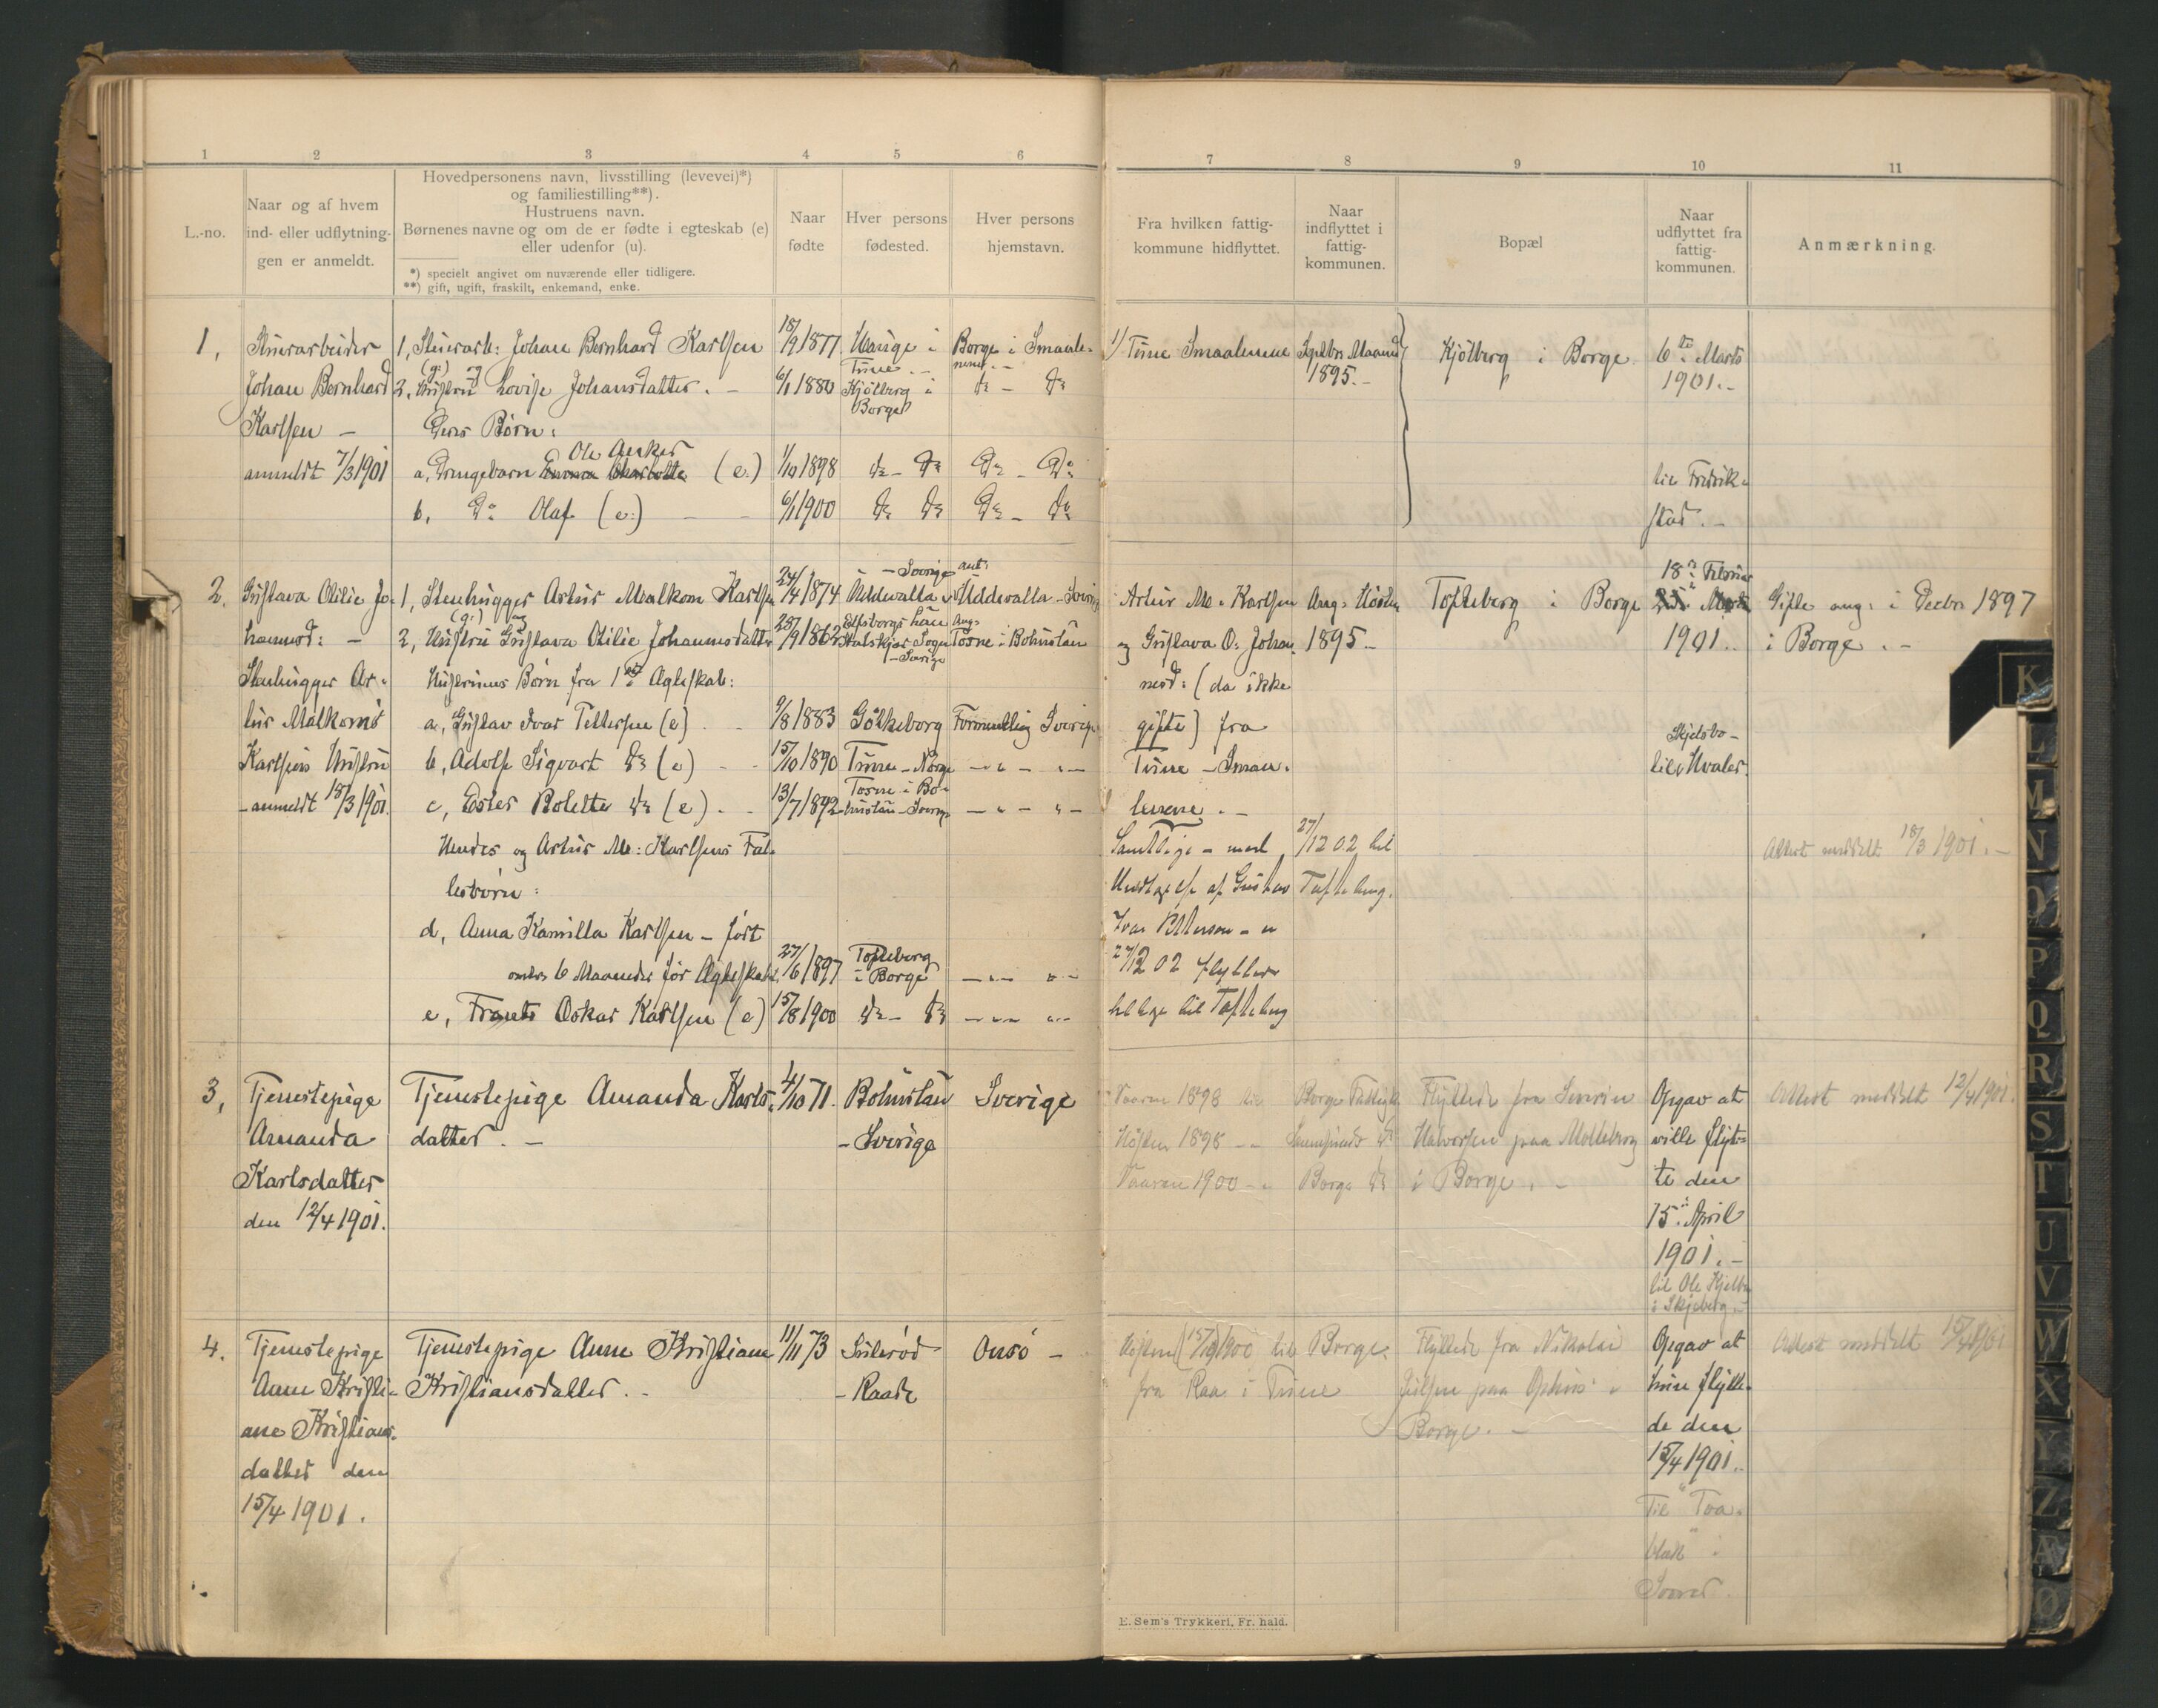 1
2
3
4
5
6
7
8
9
10
11
L.-no.
Naar og af hvem
ind- eller udflytning-
gen er anmeldt.
Hovedpersonens navn, livsstilling (levevei)*)
og familiestilling**).
Hustruens navn.
Børnenes navne og om de er fødte i egteskab (e)
eller udenfor (u).
*) specielt angivet om nuværende eller tidligere.
**) gift, ugift, fraskilt, enkemand, enke.
Naar
fødte
Hver persons
fødested.
Hver persons
hjemstavn.
Fra hvilken fattig-
kommune hidflyttet.
Naar
indflyttet i
fattig-
kommunen.
Bopæl
Naar
udflyttet fra
fattig-
kommunen.
Anmærkning.
1,
Johan Bernhard
Karlsen —
anmeldt 7/3 1901
1, Johan Bernhard Karlsen
(g:) og
2, Hustru Lovise Johansdatter. -
Deres Børn:
Ole Anker
a, Drengebarn (e.)
b, Do Olaf (e:) - -
18/9 1877
6/1 1880
1/10 1898
6/1 1900
Hauge i
Tune. -
Kjölberg i
Borge
do - do
do do
Borge i Smaale-
nene. -
do - do
Do - Do
Do - Do
1) Tune Smaalenene
Septbr Maaned
1895. -
Kjölberg i Borge
6te Marts
1901. -
til Fredrik-
stad. -
2.
Gustava Otilie Jo-
hannesd: -
Stenhugger Ar-
tur Malkoms
Karlsens Hustru
- anmeldt 18/3 1901.
1, Stenhugger Artur Malkom Karlsen
(g:) og
2, Hustru Gustava Otilie Johannesdatter
Hustruens Børn fra 1ste Ægteskab:
a, Gustav Ivar Pettersen (e) - -
b, Adolf Sigvart do (e) - -
c, Ester Bolette do (e) - -
Hendes og Artur M: Karlsens Fæl-
lesbörn:
d, Anna Kamilla Karlsen - født
omtr. 6 Maaneder før Ægteskabet.
e, Frants Oskar Karlsen (e)
24/4 1874
28/9 1862
9/8 1883
15/10 1890
13/7 1892
27/6 1897
15/8 1900
- Sverige
Uddevalla
Elfsborgs Län
Sogn
- Sverige
Götheborg
Tune - Norge
Tosne i Bo-
huslän - Sverige
Tofteberg
i Borge
do - do
ant:
Uddevalla - Sverig
Ang:
Tosne i Bohuslän
Formentlig Sverige
- " - " -
- " - " -
- " - " -
- " - " -
Artur M. Karlsen
og Gustava O. Johan-
nesd: (da ikke
gifte) fra
Tune - Smaa-
lenene. -
Samtlige - med
Undtagelse af Gustav
Ivar Petterson - er
27/12 02 flyttet
tilbage til Tofteberg
Ang: Hösten
1895 -
27/12 02 til
Tofteberg.
Tofteberg i Borge
18de Februar
1901..
Skjelsbo -
til Hvaler.
Gifte ang: i Decbr 1897
i Borge. -
Attest meddelt 18/3 1901. -
3,
Tjenestepige
Amanda
Karlsdatter
den 12/4 1901.
Tjenestepige Amanda Karls-
datter. -
4/10 71.
Bohuslän
- Sverige
Sverige
Vaaren 1898 til Borge
Høsten 1898 - "
Vaaren 1900 - " Borge do
Flyttede fra Severin
Halvorsen paa Molleberg
i Borge. -
Opgav at
ville flyt-
te den
15de April
1901. -
til Ole
i Skjeberg. -
Attest meddelt 12/4 1901.
4.
Tjenestepige
Anne Kristi-
ane Kristians-
datter den
15/4 1901.
Tjenestepige Anne Kristiane
Kristiansdatter. -
11/11 73
- Raade
Onsö -
Høsten (15/10) 1900 til Borge
fra Raa i Tune
Flyttede fra Nikolai
Julsen paa Ophus i
Borge. -
Opgav at
hun flytte-
de den
15/4 1901..
Til
Attest meddelt 15/4 1901
E. Sem's Trykkeri, Fr. hald.
K
L
M
N
O
P
Q
R
S
T
U
V
W
X
Y
Z
Æ
Ø